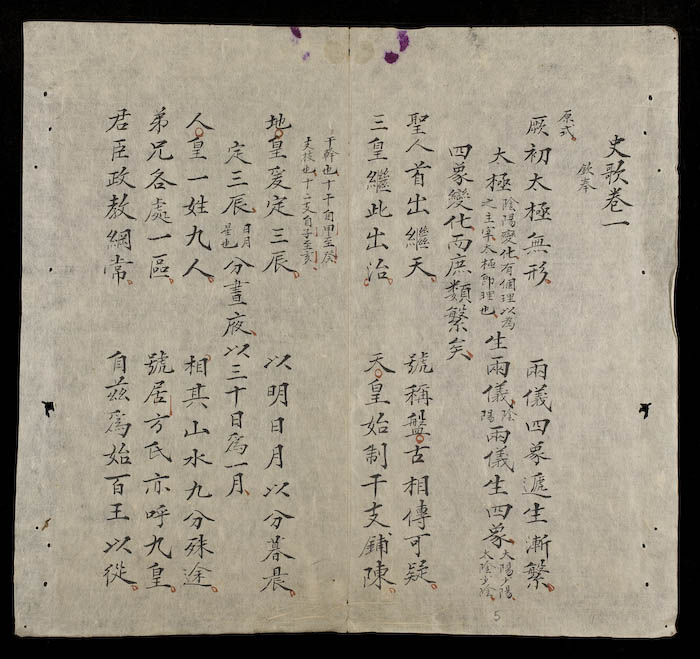 史歌卷一
欽奉
原式
厥初太極無形　兩儀四象遞生漸繁
太極陰陽變化有個理以為之主宰太極即理也生兩儀陰陽兩儀生四象太陽少陽太陰少陰
四象變化而庶類繁矣
聖人首出繼天　號稱盤古相傳可疑
三皇繼此出治　天皇始制干支鋪陳
干幹也十干自甲至癸
支枝也十二支自子至亥
地皇爰定三辰　以明日月以分暮晨
定三辰日月星也分晝夜以三十日爲一月
人皇一姓九人　相其山水九分殊途
弟兄各處一區　號居方氏亦呼九皇
君臣政教綱常　自茲爲始百王以從
5